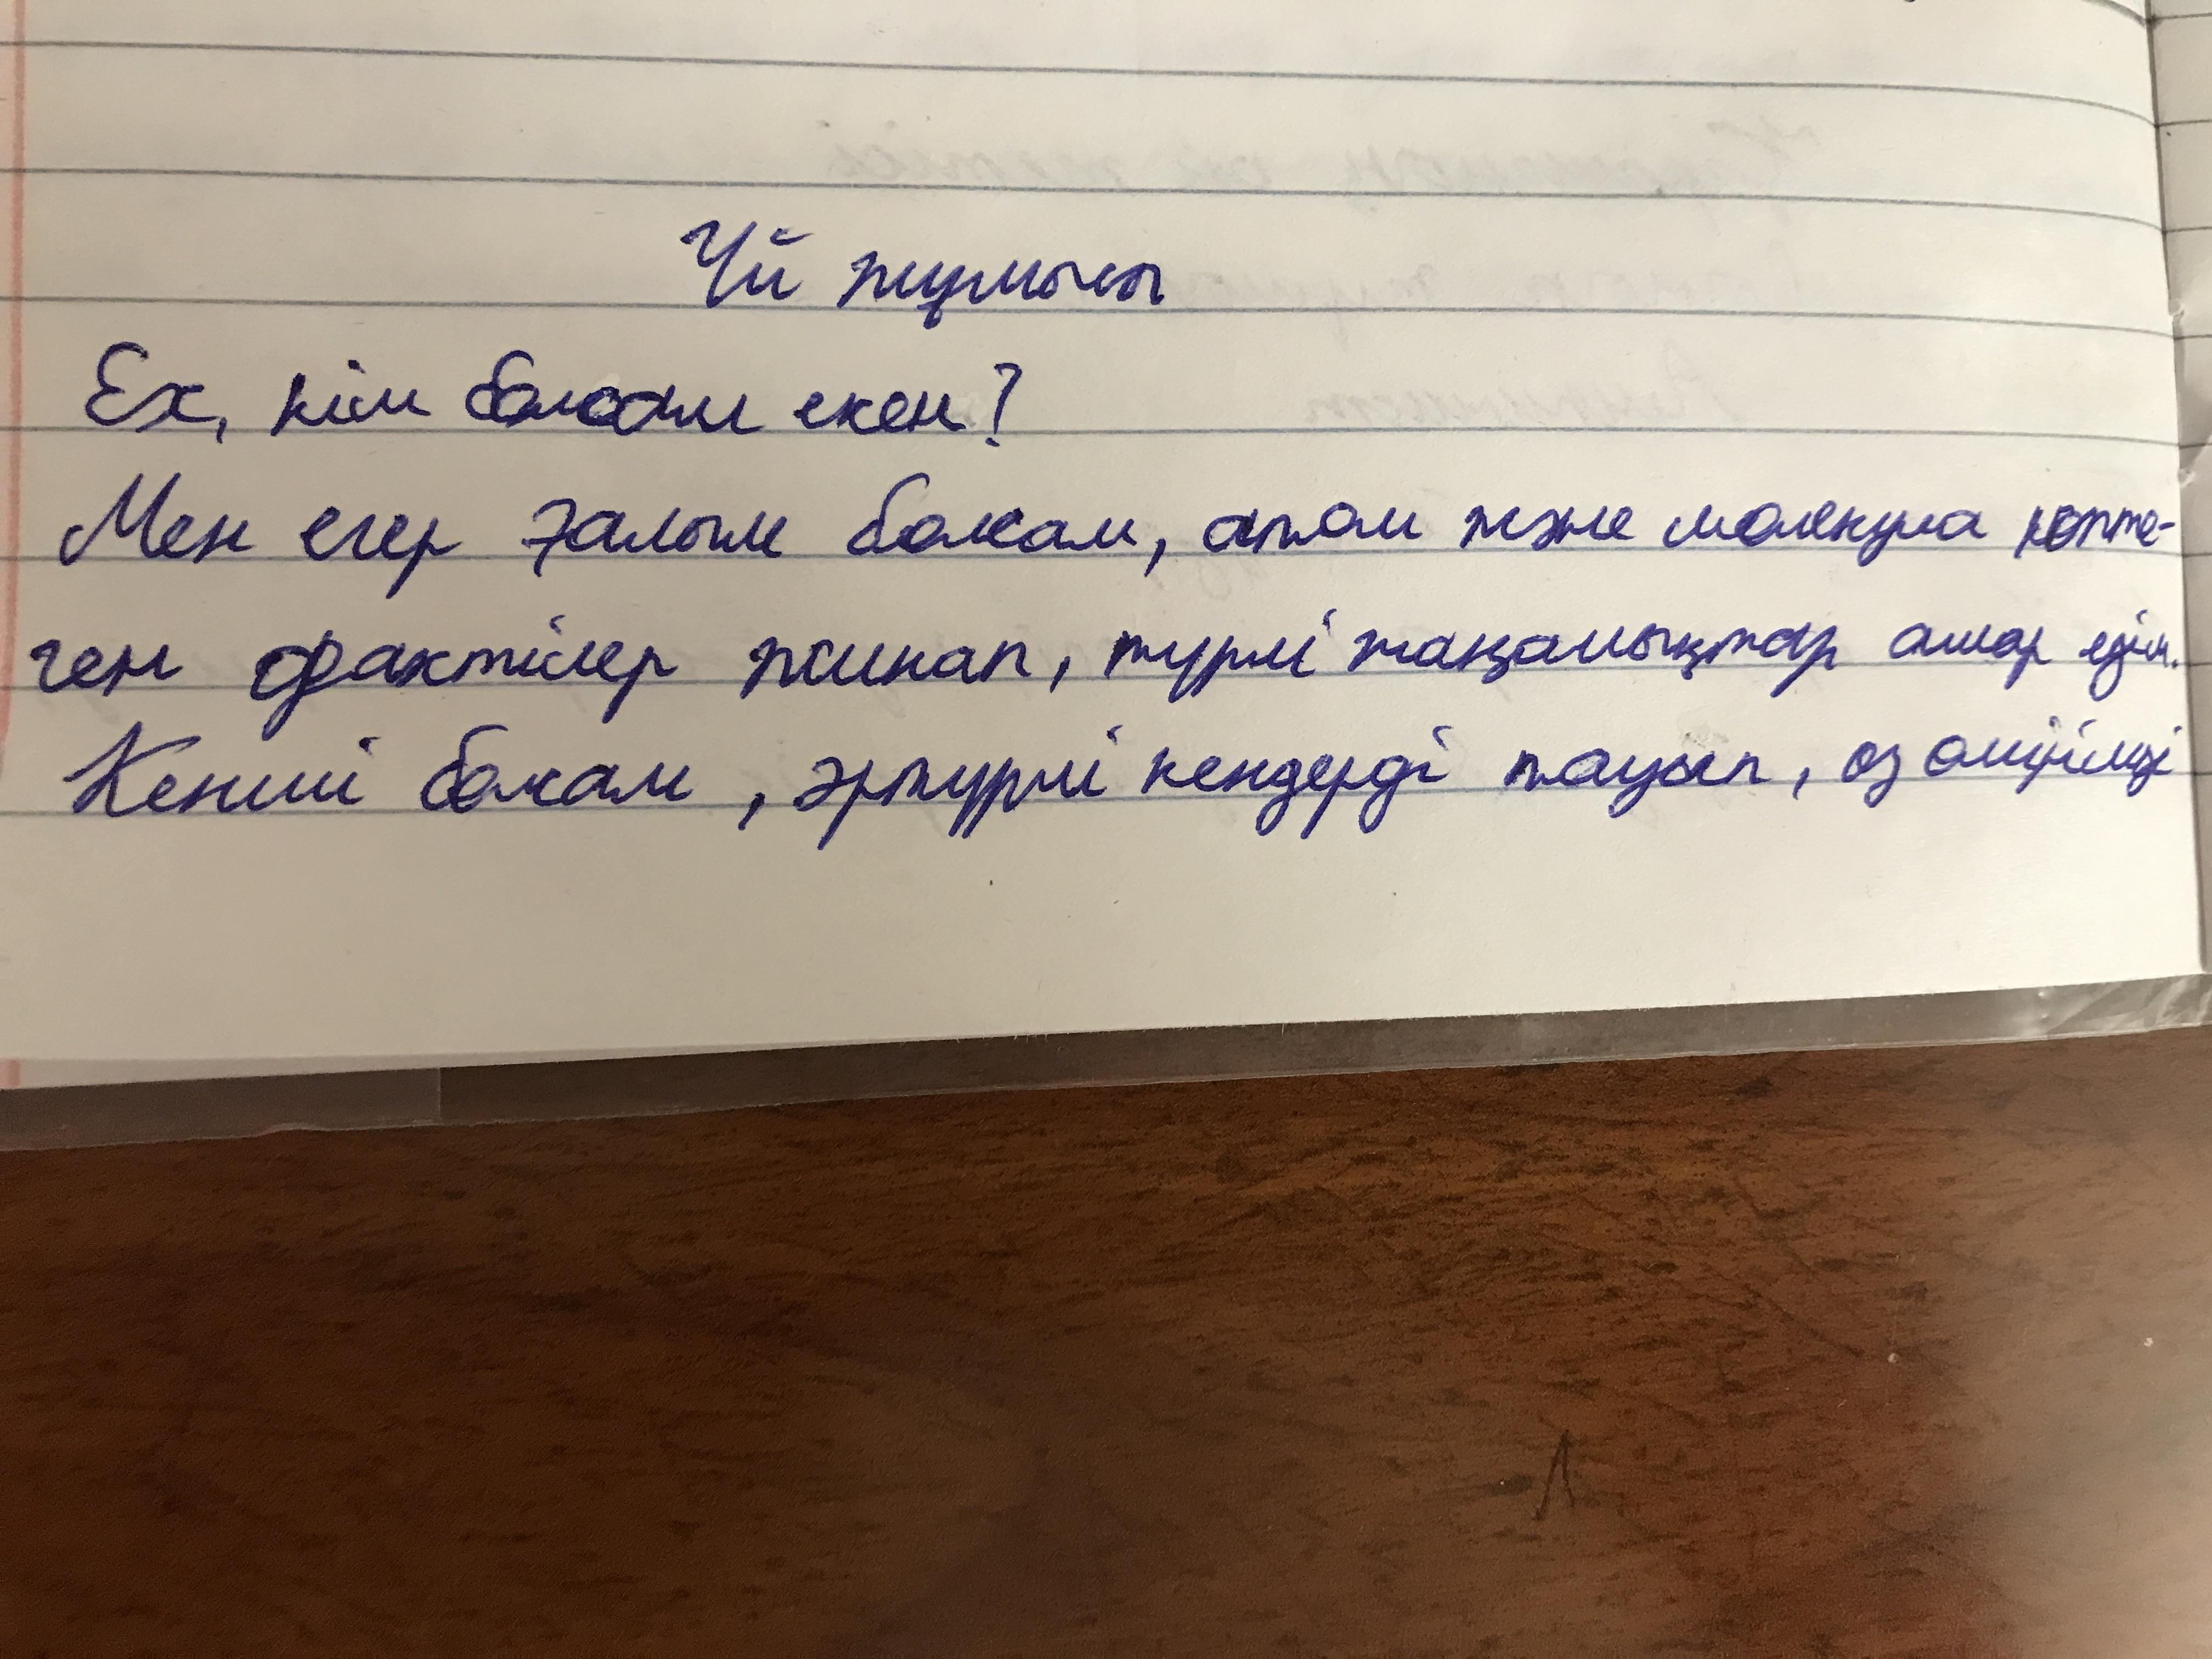 Үй жұмысы
Ех, кім боласам екен?
Мен егер ғалым болсам, атом және молекула көпте-
ген фактілер жинап, түрлі жаңалықтар ашар едім.
Кенші болсам, әртүрлі кендерді тауып, өз өміріմді